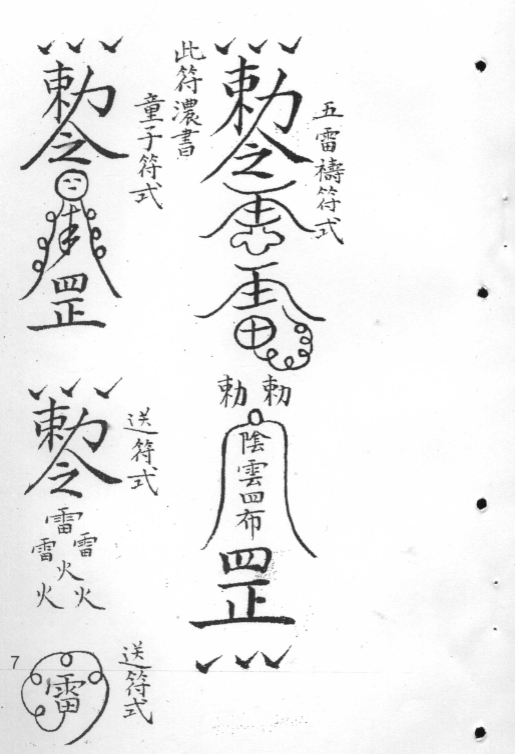 五雷禱符式
勅令
勅 勅
陰雲四布
罡
此符濃書
童子符式
勅令
罡
送符式
勅令
雷
雷 雷
火
火 火
送符式
雷
7